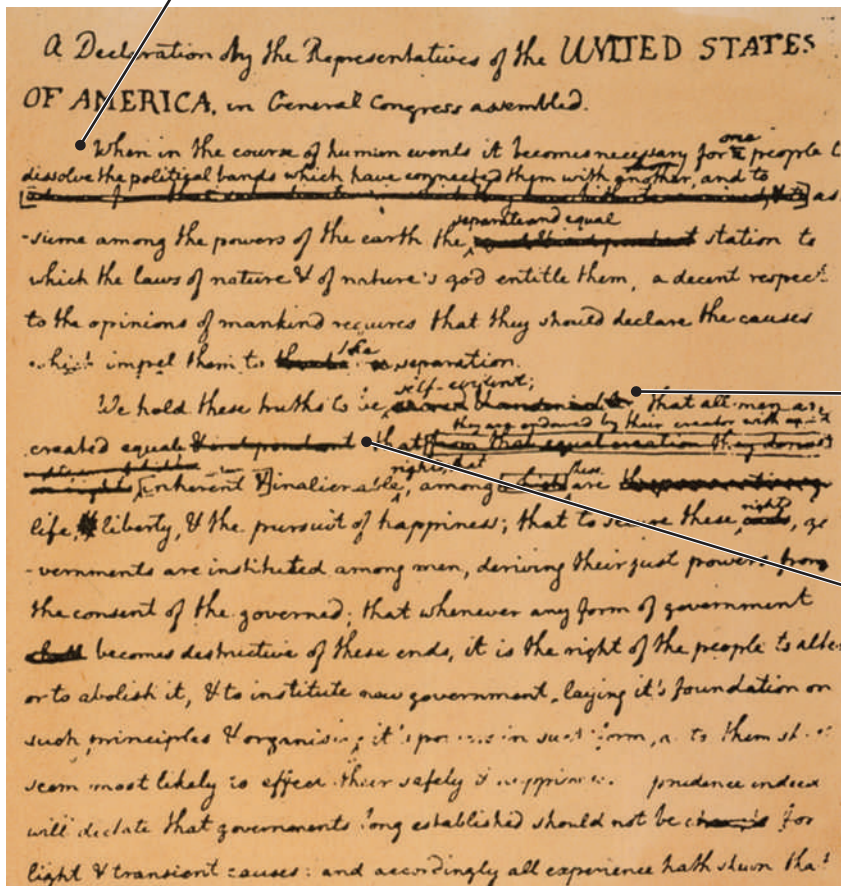 A Declaration by the Representatives of the UNITED STATES
OF AMERICA, in General Congress assembled.
When in the course of human events it becomes necessary for one people
dissolve the political bands which have connected them with another, and to
as-
separate and equal
-sume among the powers of the earth the station to
which the laws of nature & of nature's god entitle them, a decent respect
to the opinions of mankind requires that they should declare the causes
which impel them to the separation.
self-evident;
We hold these truths to be that all men are
they are endowed by their creator with
created equal & independent that from that equal creation they
rights; that these
inherent & inalienable, among which are
life, liberty, & the pursuit of happiness; that to secure these rights, go
-vernments are instituted among men, deriving their just powers from
the consent of the governed; that whenever any form of government
shall becomes destructive of these ends, it is the right of the people to alter
or to abolish it, & to institute new government, laying it's foundation on
such principles & organising it's powers in such form, as to them sh
seem most likely to effect their safety & happiness. prudence indeed
will dictate that governments long established should not be for
light & transient causes: and accordingly all experience hath shewn that